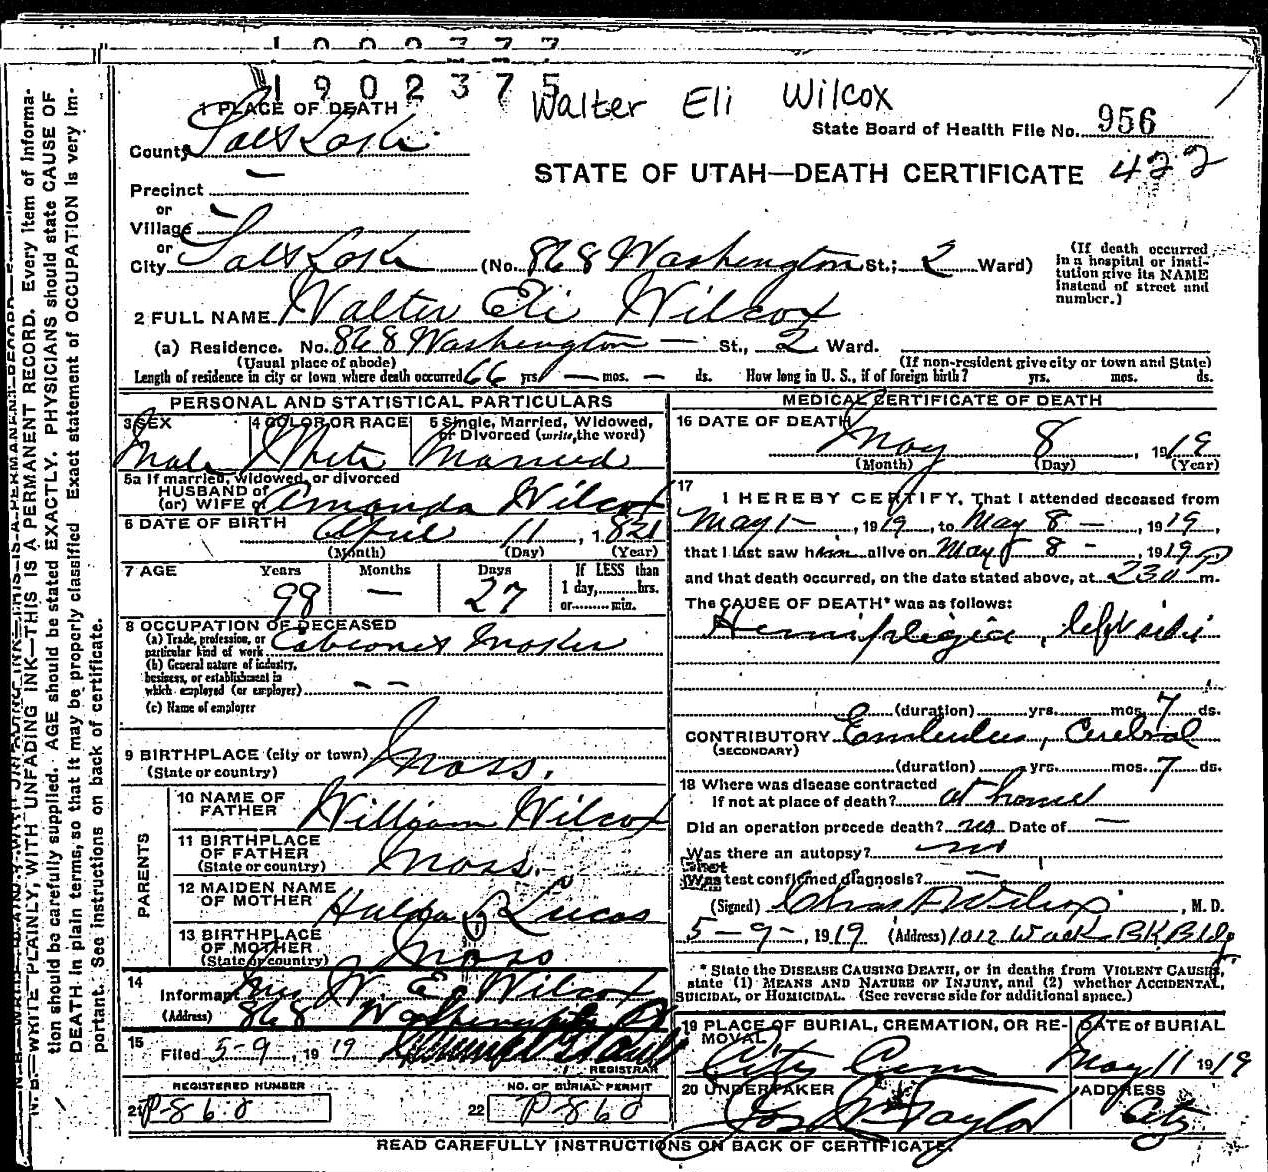 1902377
1902375
Walter Eli Wilcox
1 PLACE OF DEATH
State Board of Health File No. 956
County Salt Lake
STATE OF UTAH—DEATH CERTIFICATE 422
Precinct —
or
Village
or
City Salt Lake (No. 868 Washington St.; 2 Ward)
(If death occurred in a hospital or institution give its NAME instead of street and number.)
2 FULL NAME Walter Eli Wilcox
(a) Residence. No. 868 Washington — St., 2 Ward.
(Usual place of abode) (If non-resident give city or town and State)
Length of residence in city or town where death occurred 66 yrs — mos. — ds. How long in U. S., if of foreign birth? yrs. mos. ds.
PERSONAL AND STATISTICAL PARTICULARS
3 SEX
Male
4 COLOR OR RACE
White
5 Single, Married, Widowed, or Divorced (write the word)
Married
5a If married, widowed, or divorced
HUSBAND of
(or) WIFE of Amanda Wilcox
6 DATE OF BIRTH April 11, 1821
(Month) (Day) (Year)
7 AGE Years Months Days If LESS than
98 — 27 1 day, hrs.
or min.
8 OCCUPATION OF DECEASED
(a) Trade, profession, or particular kind of work Cabinet Maker
(b) General nature of industry, business, or establishment in which employed (or employer) — —
(c) Name of employer
9 BIRTHPLACE (city or town) Mass.
(State or country)
PARENTS
10 NAME OF FATHER William Wilcox
11 BIRTHPLACE OF FATHER Mass.
(State or country)
12 MAIDEN NAME OF MOTHER Hulda Lucas
13 BIRTHPLACE OF MOTHER Mass
(State or country)
14
Informant Mrs W. E. Wilcox
(Address) 868 Washington St
15
Filed 5-9, 1919
REGISTRAR
REGISTERED NUMBER
21 P-868
NO. OF BURIAL PERMIT
22 P-868
MEDICAL CERTIFICATE OF DEATH
16 DATE OF DEATH
May 8, 1919
(Month) (Day) (Year)
17
I HEREBY CERTIFY, That I attended deceased from
May 1—, 1919, to May 8—, 1919,
that I last saw him alive on May 8—, 1919
and that death occurred, on the date stated above, at 230 P m.
The CAUSE OF DEATH* was as follows:
Hemiplegia, left side
(duration) yrs. mos. 7 ds.
CONTRIBUTORY Embolus, Cerebral
(SECONDARY)
(duration) yrs. mos. 7 ds.
18 Where was disease contracted
If not at place of death? at home
Did an operation precede death? no Date of —
Was there an autopsy? no
What test confirmed diagnosis? —
(Signed) Chas F Wilcox, M. D.
5-9-, 1919 (Address) 1012 Walk BK Bldg
* State the DISEASE CAUSING DEATH, or in deaths from VIOLENT CAUSES,
state (1) MEANS AND NATURE OF INJURY, and (2) whether ACCIDENTAL,
SUICIDAL, or HOMICIDAL. (See reverse side for additional space.)
19 PLACE OF BURIAL, CREMATION, OR REMOVAL
City Cem
DATE of BURIAL
May 11 1919
20 UNDERTAKER
Jos Wm Taylor
ADDRESS
City
READ CAREFULLY INSTRUCTIONS ON BACK OF CERTIFICATE.
N. B.—WRITE PLAINLY, WITH UNFADING INK—THIS IS A PERMANENT RECORD. Every item of information should be carefully supplied. AGE should be stated EXACTLY. PHYSICIANS should state CAUSE OF DEATH in plain terms, so that it may be properly classified. Exact statement of OCCUPATION is very important. See instructions on back of certificate.